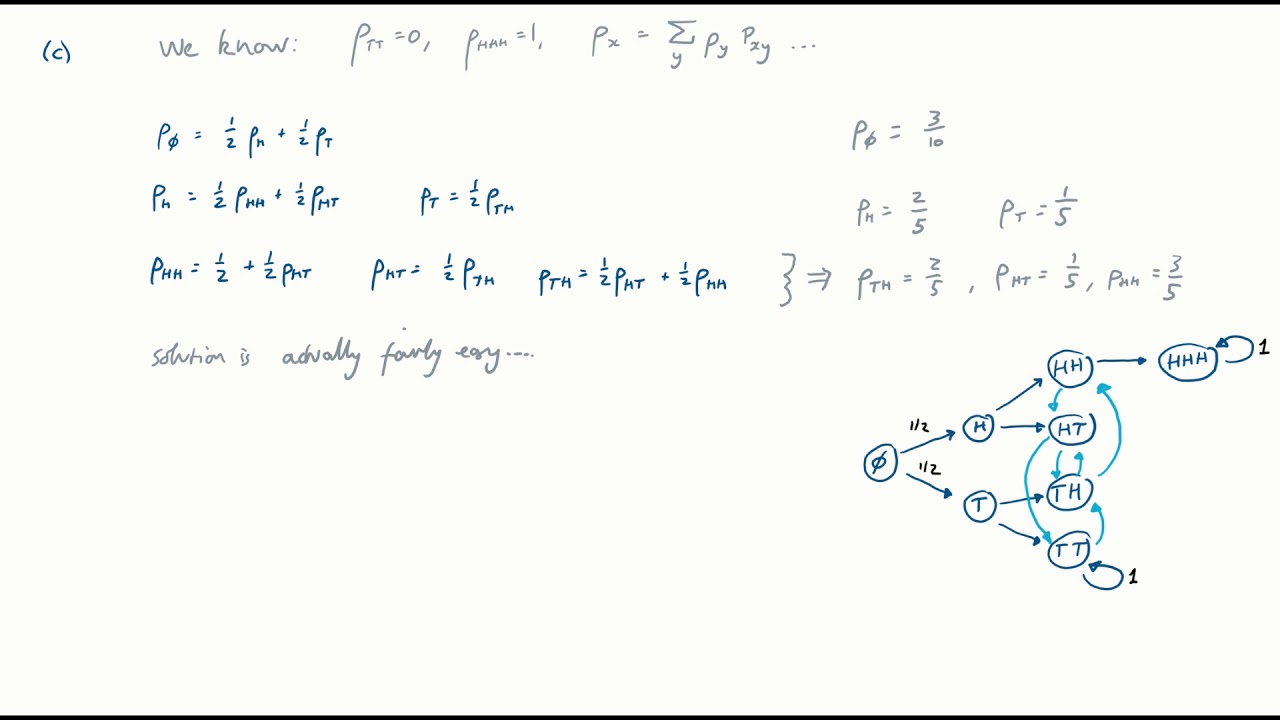 (c) We know: ρ_TT = 0, ρ_HHH = 1, ρ_x = Σ_y ρ_y P_xy ...
ρ_ϕ = 1/2 ρ_H + 1/2 ρ_T
ρ_ϕ = 3/10
ρ_H = 1/2 ρ_HH + 1/2 ρ_HT
ρ_T = 1/2 ρ_TH
ρ_H = 2/5
ρ_T = 1/5
ρ_HH = 1/2 + 1/2 ρ_HT
ρ_HT = 1/2 ρ_TH
ρ_TH = 1/2 ρ_HT + 1/2 ρ_HH
} ⇒ ρ_TH = 2/5 , ρ_HT = 1/5 , ρ_HH = 3/5
solution is actually fairly easy....
HH
HHH
1
1/2
H
HT
ϕ
1/2
T
TH
TT
1